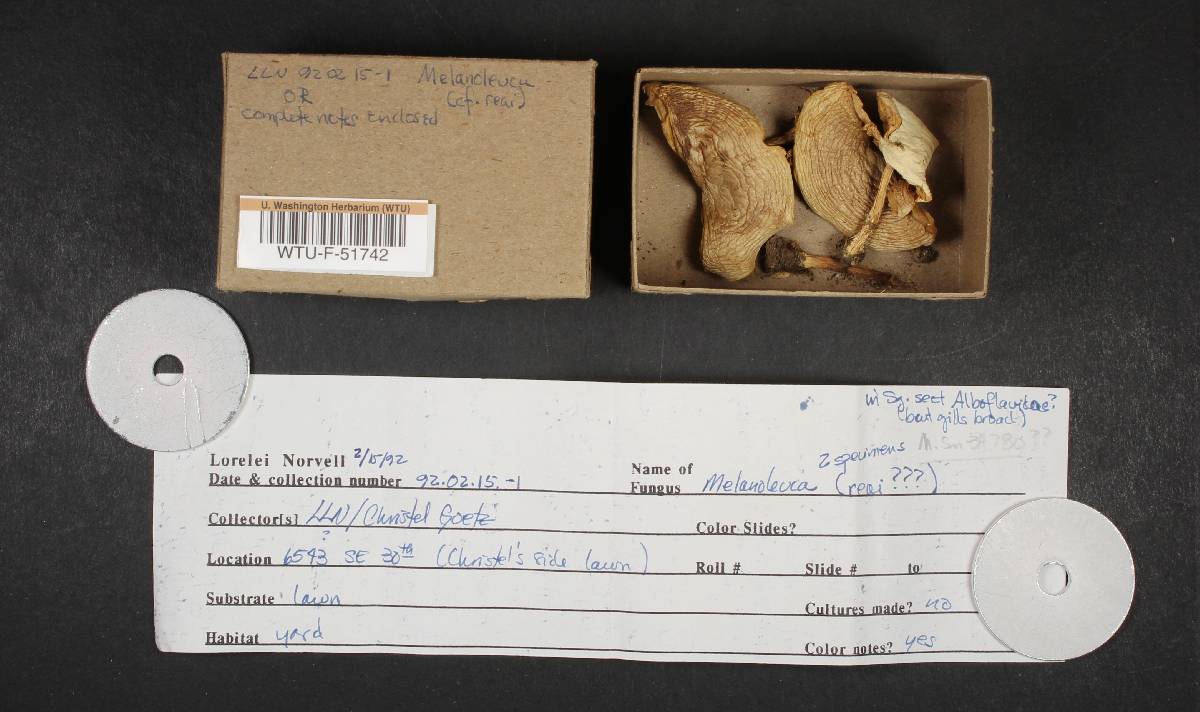 LLN 92 02 15-1 Melanoleuca
OR (cf. reai)
complete notes Enclosed
U. Washington Herbarium (WTU)
WTU-F-51742
in Sg. sect Alboflavidae?
(but gills broad)
2 specimens M. Sm 34780??
Lorelei Norvell 2/15/92
Date & collection number 92.02.15.-1
Name of
Fungus Melanoleuca (reai ???)
Collector[s] LLN/Christel Goetz
Color Slides?
Location 6543 SE 30th (Christel's side lawn)
?
Roll # Slide # to
Substrate lawn
Cultures made? no
Habitat yard
Color notes? yes